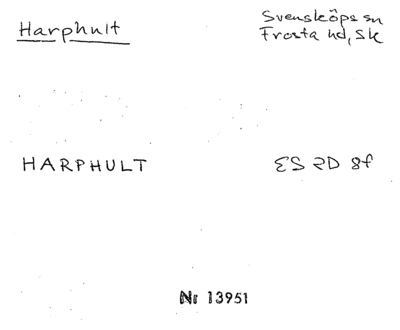 Harphult
Svensköps sn
Frosta hd, Sk
HARPHULT
ES 2D 8f
Nr 13951